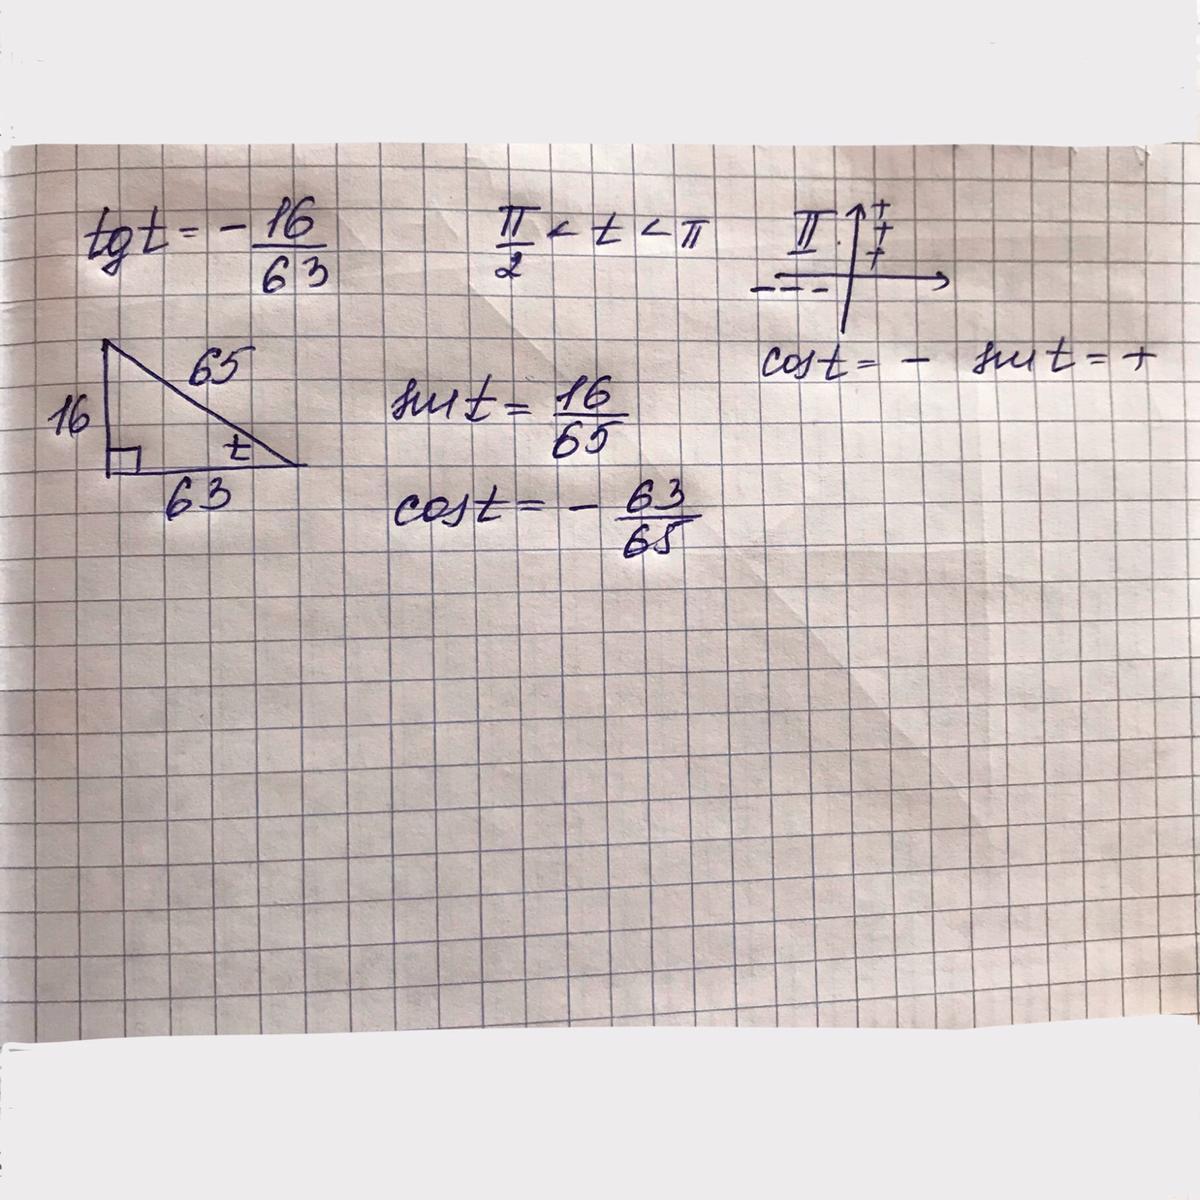 tg t = - 16/63    π/2 < t < π    II + + +
- - -
cos t = -  sin t = +
65
16
t
63
sin t = 16/65
cos t = - 63/65